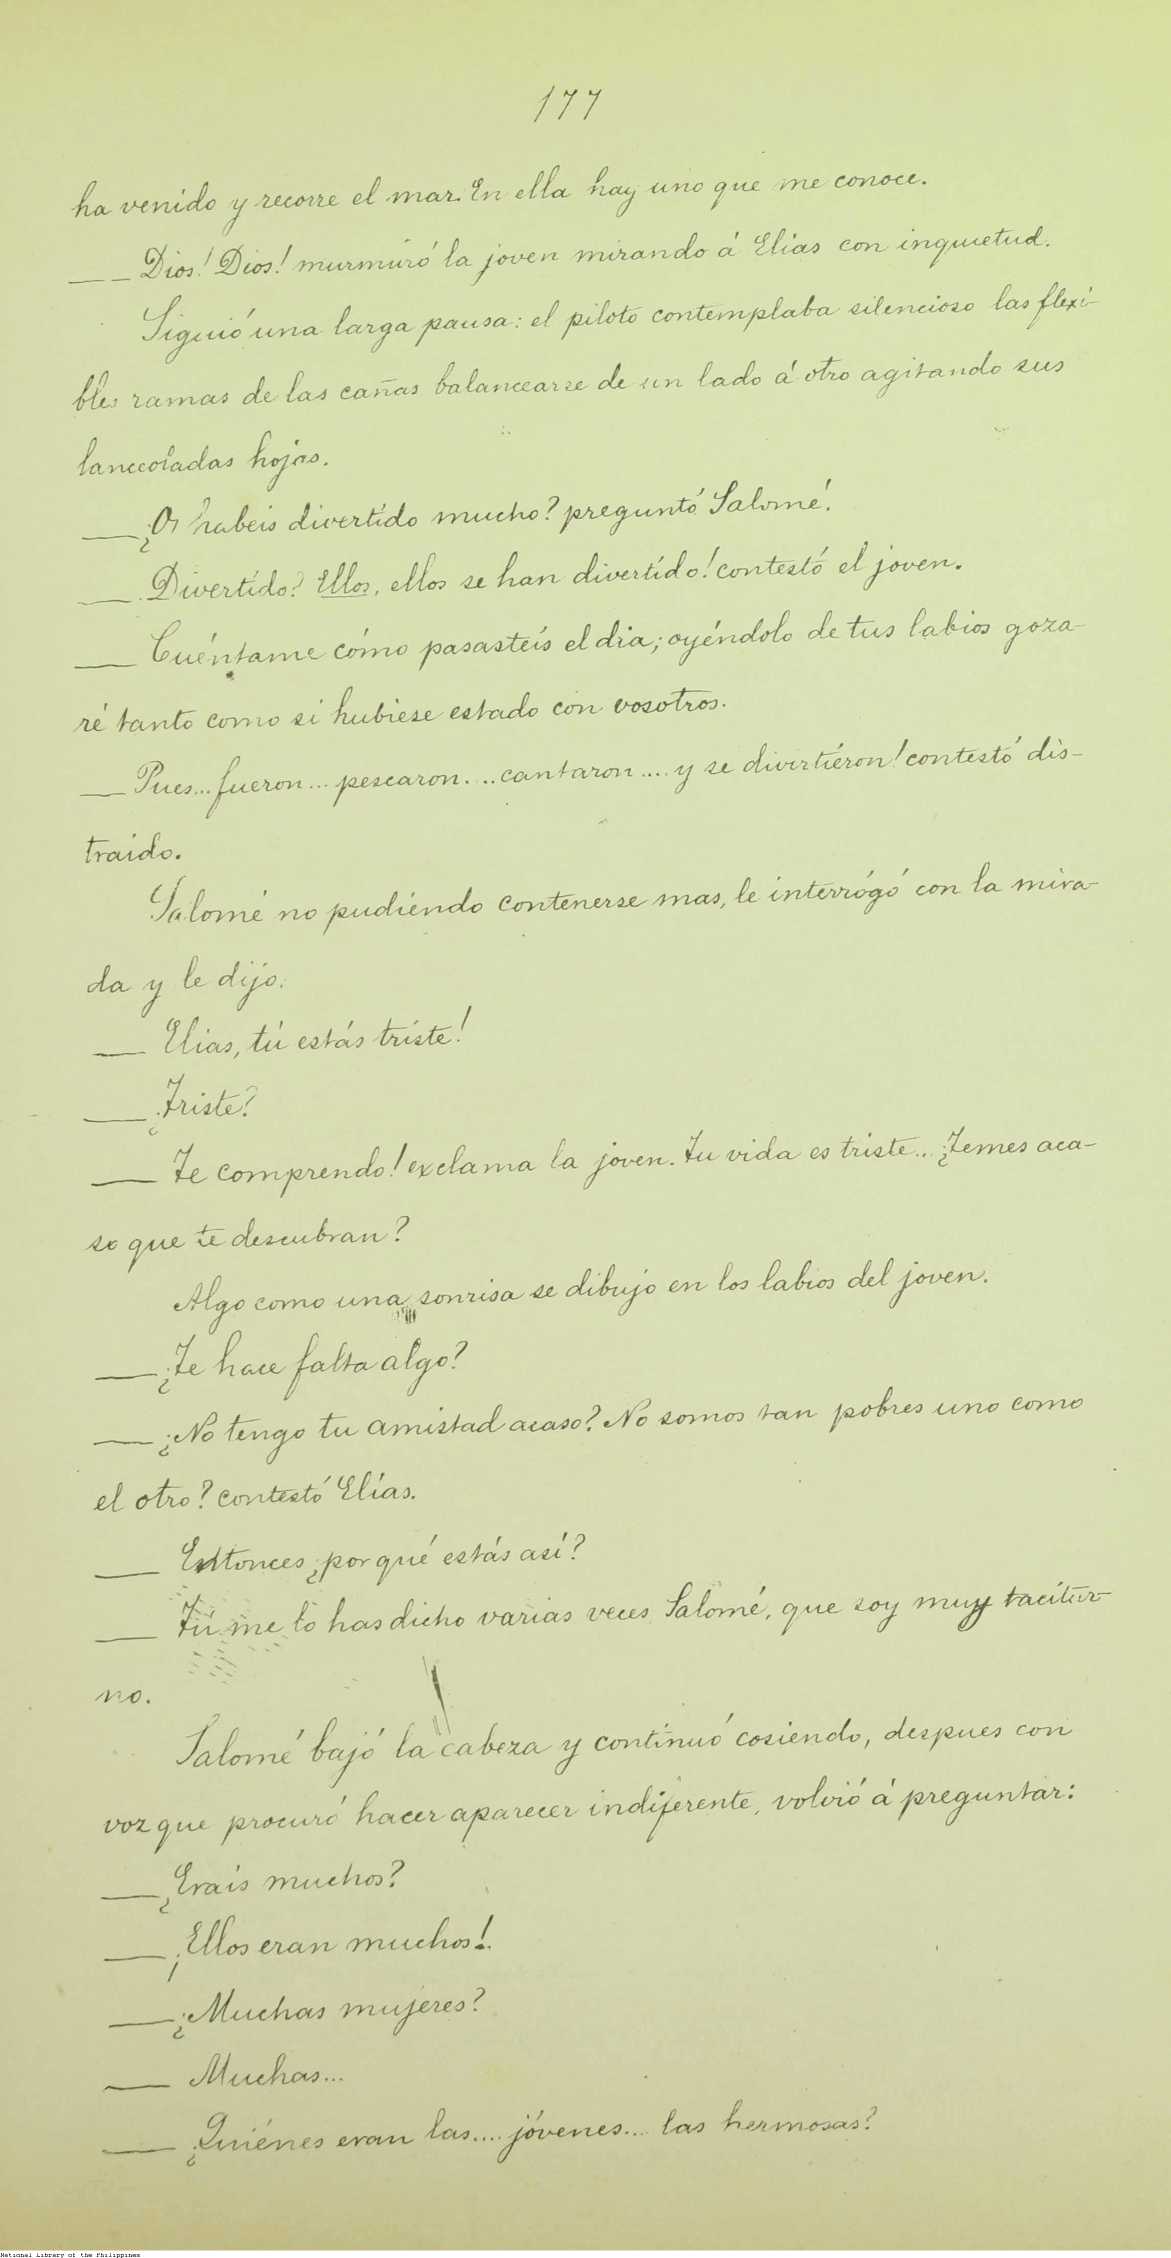 177
ha venido y recorre el mar. En ella hay uno que me conoce.
— Dios! Dios! murmuró la joven mirando á Elías con inquietud.
Siguió una larga pausa: el piloto contemplaba silencioso las flexi-
bles ramas de las cañas balancearse de un lado á otro agitando sus
lanceoladas hojas.
— ¿Os habeis divertido mucho? preguntó Salomé.
— Divertido? Ellos, ellos se han divertido! contestó el joven.
— Cuéntame cómo pasasteis el dia; oyéndolo de tus labios goza-
ré tanto como si hubiese estado con vosotros.
— Pues... fueron... pescaron.... cantaron.... y se divirtieron! contestó dis-
traido.
Salomé no pudiendo contenerse mas, le interrógó con la mira-
da y le dijo:
— Elias, tú estás triste!
— ¿Triste?
— Te comprendo! exclama la joven. Tu vida es triste... ¿Temes aca-
so que te descubran?
Algo como una sonrisa se dibujo en los labios del joven.
— ¿Te hace falta algo?
— ¿No tengo tu amistad acaso? No somos tan pobres uno como
el otro? contestó Elías.
— Entonces ¿por qué estás así?
— Tú me lo has dicho varias veces Salomé, que soy muy tacitur-
no.
Salomé bajó la cabeza y continuó cosiendo, despues con
voz que procuró hacer aparecer indiferente, volvió á preguntar:
— ¿Erais muchos?
— ¡Ellos eran muchos!
— ¿Muchas mujeres?
— Muchas...
— ¿Quiénes eran las.... jóvenes... las hermosas?
National Library of the Philippines